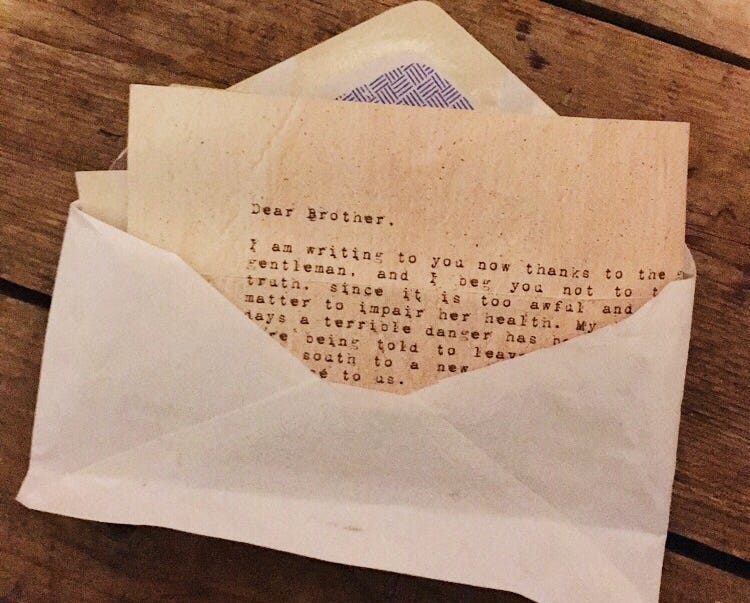 Dear Brother.
I am writing to you now thanks to the
gentleman. and I beg you not to
truth. since it is too awful and
matter to impair her health. My
days a terrible danger has
being told to
south to a new
to us.